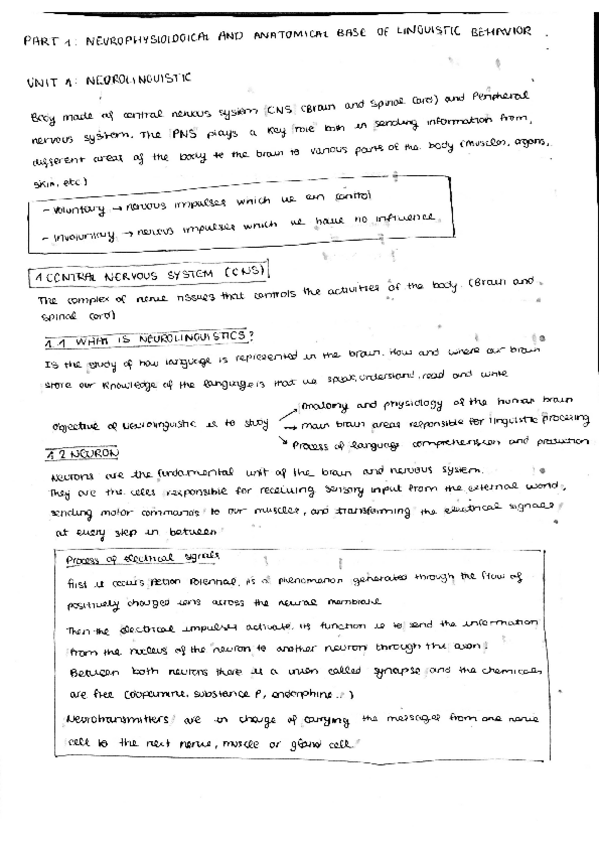 PART 1: NEUROPHYSIOLOGICAL AND ANATOMICAL BASE OF LINGUISTIC BEHAVIOR.
UNIT 1: NEUROLINGUISTIC
Body made of central nervous system CNS (Brain and Spinal Cord) and Peripheral
nervous system. The PNS plays a key role both in sending information from,
different areas of the body to the brain to various parts of the body (muscles, organs,
skin, etc)
- Voluntary → nervous impulses which we can control
- Involuntary → nervous impulses which we have no influence.
1 CENTRAL NERVOUS SYSTEM (CNS)
The complex of nerve tissues that controls the activities of the body. (Brain and
spinal cord)
1.1 WHAT IS NEUROLINGUISTICS?
Is the study of how language is represented in the brain. How and where our brain
store our knowledge of the languages that we speak, understand, read and write
Anatomy and physiology of the human brain
Objective of Neurolinguistic is to study → main brain areas responsible for linguistic processing
Process of language comprehension and production
1.2 NEURON
Neurons are the fundamental unit of the brain and nervous system.
They are the cells responsible for receiving sensory input from the external world,
sending motor commands to our muscles, and transforming the electrical signals
at every step in between
Process of electrical signals
First it occurs Action Potential, is a phenomenon generated through the flow of
positively charged ions across the neural membrane
Then the electrical impulse activate, its function is to send the information
from the nucleus of the neuron to another neuron through the axon.
Between both neurons there is a union called synapse and the chemicals
are free (dopamine, substance P, endorphine...)
Neurotransmitters are in charge of carrying the messages from one nerve
cell to the next nerve, muscle or gland cell